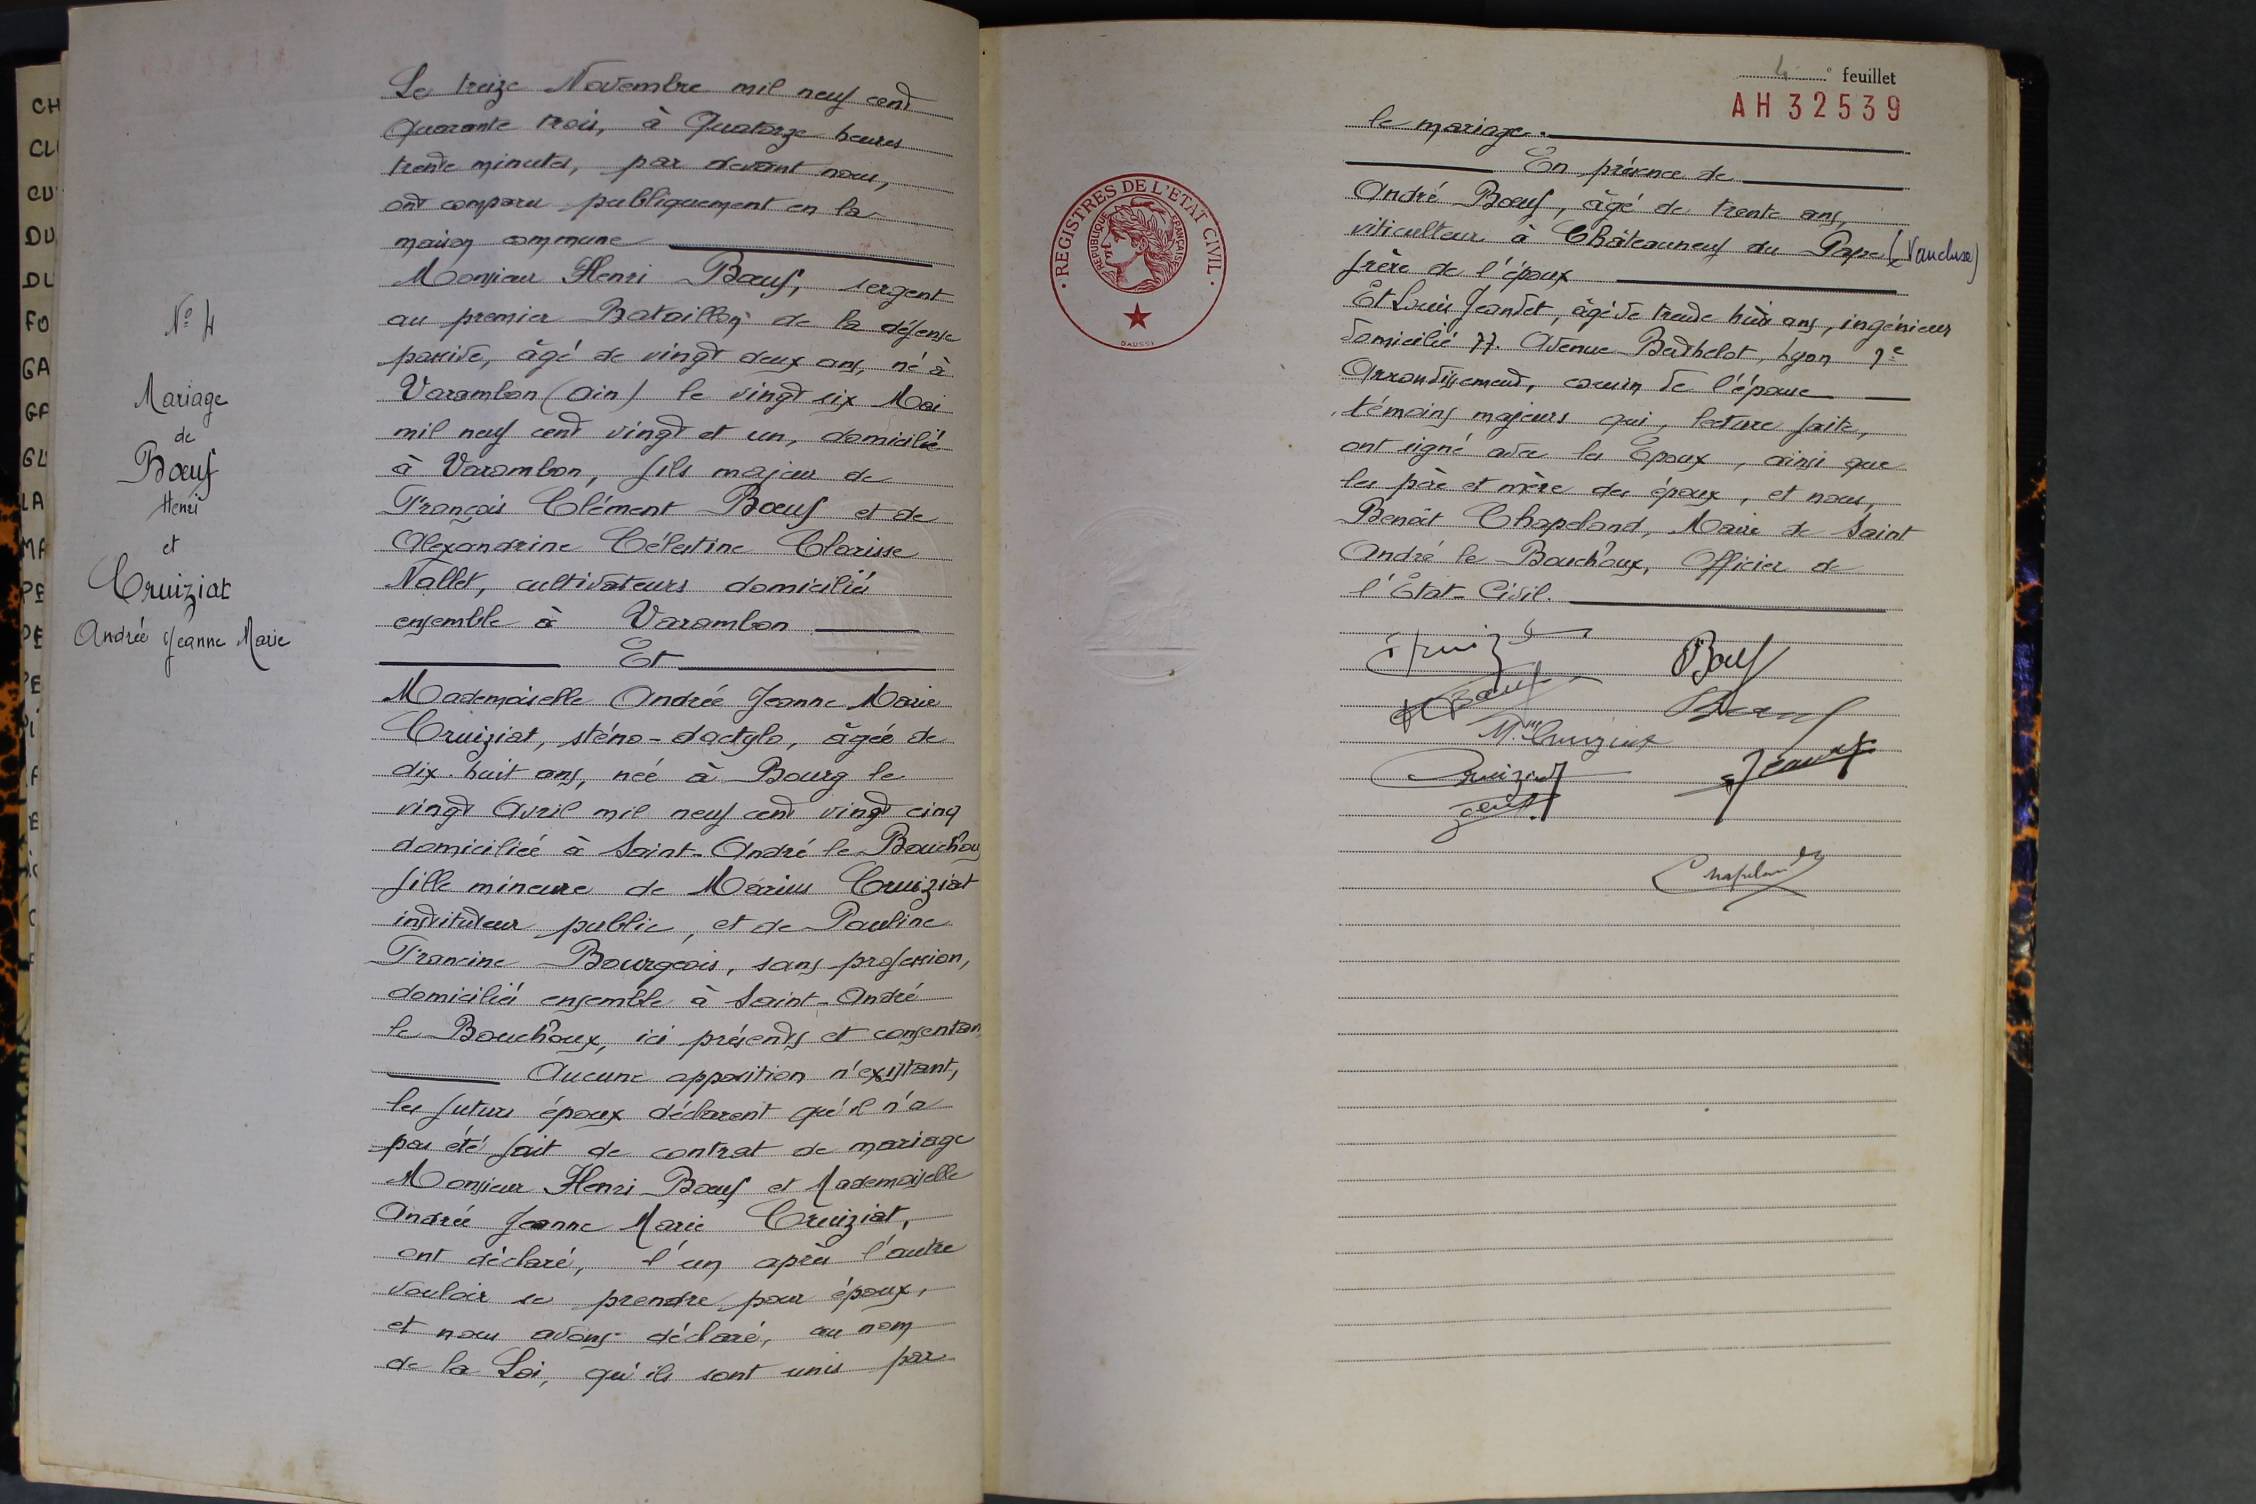 N° 4
Mariage
de
Bœuf
Henri
et
Cruiziat
Andrée Jeanne Marie
Le treize Novembre mil neuf cent
Quarante trois, à Quatorze heures
trente minutes, par devant nous,
ont comparu publiquement en la
maison commune
Monsieur Henri Bœuf, sergent
au premier Bataillon de la défense
passive, âgé de vingt deux ans, né à
Varambon (Ain) le vingt six Mai
mil neuf cent vingt et un, domicilié
à Varambon, fils majeur de
François Clément Bœuf et de
Alexandrine Célestine Clarisse
Nallet, cultivateurs domiciliés
ensemble à Varambon
Et
Mademoiselle Andrée Jeanne Marie
Cruiziat, sténo-dactylo, âgée de
dix-huit ans, née à Bourg le
vingt Avril mil neuf cent vingt cinq
domiciliée à Saint-André le Bouchou
fille mineure de Marius Cruiziat
instituteur public, et de Pauline
Francine Bourgeois, sans profession,
domiciliés ensemble à Saint-André
le Bouchoux, ici présents et consentan
Aucune opposition n'existant,
les futurs époux déclarent qu'il n'a
pas été fait de contrat de mariage
Monsieur Henri Bœuf et Mademoiselle
Andrée Jeanne Marie Cruiziat,
ont déclaré, l'un après l'autre
vouloir se prendre pour époux,
et nous avons déclaré, au nom
de la Loi, qu'ils sont unis par
4e feuillet
AH 32539
REGISTRES DE L'ETAT CIVIL
REPUBLIQUE FRANÇAISE
DAUSSI
le mariage.
En présence de
André Bœuf, âgé de trente ans,
viticulteur à Châteauneuf du Pape (Vaucluse)
frère de l'époux
Et Louis Jeandet, âgé de trente huit ans, ingénieur
domicilié 77. Avenue Berthelot, Lyon 7e
Arrondissement, cousin de l'épouse
témoins majeurs qui, lecture faite,
ont signé avec les Epoux, ainsi que
les père et mère des époux, et nous,
Benoît Chapeland, Maire de Saint
André le Bouchoux, Officier de
l'Etat-Civil.
Cruiziat
Bœuf
Bœuf
Mme Cruiziat
Cruiziat
Jeandet
Chapeland
CH
CL
CU
DU
DU
FO
GA
GA
GU
LA
MA
PE
PE
PE
PI